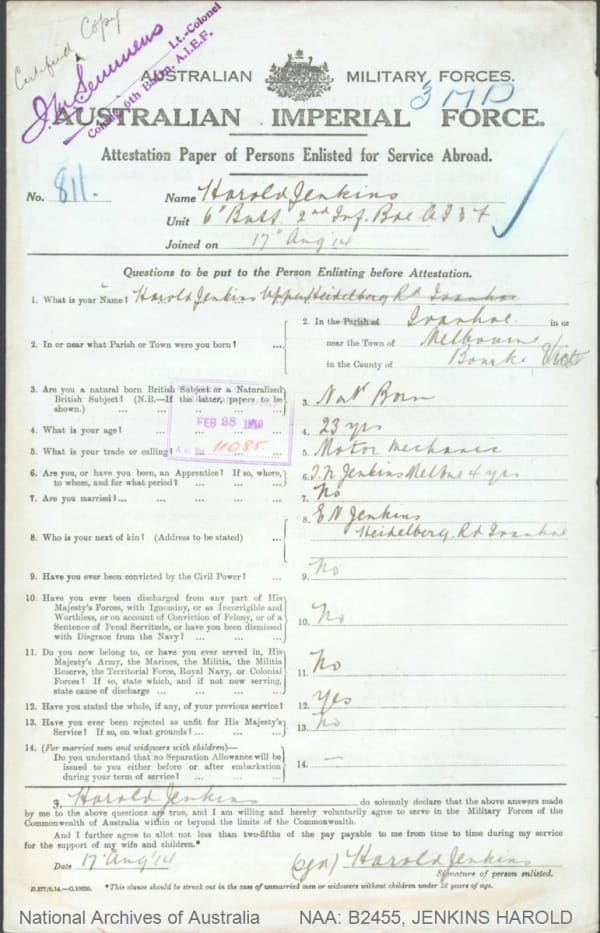 Certified Copy
J.M. Semmens Lt.-Colonel
Comdg. 6th Battn. A.I.F.
AUSTRALIAN MILITARY FORCES.
3 MD
AUSTRALIAN IMPERIAL FORCE.
Attestation Paper of Persons Enlisted for Service Abroad.
No. 811. Name Harold Jenkins
Unit 6th Batt. 2nd Inf. Bde A I F
Joined on 17" Aug '14
Questions to be put to the Person Enlisting before Attestation.
1. What is your Name? Harold Jenkins Upper Heidelberg Rd Ivanhoe
2. In or near what Parish or Town were you born? ... 2. In the Parish of Ivanhoe in or
near the Town of Melbourne
in the County of Bourke Vict
3. Are you a natural born British Subject or a Naturalized
British Subject? (N.B.—If the latter, papers to be
shown.) ... 3. Nat Born
FEB 28
11085.
4. What is your age? ... 4. 23 yrs
5. What is your trade or calling? ... 5. Motor Mechanic
6. Are you, or have you been, an Apprentice? If so, where,
to whom, and for what period? ... 6. Jenkins Melbne 4 yrs
7. Are you married? ... 7. No
8. Who is your next of kin? (Address to be stated) ... 8. E N Jenkins
Heidelberg Rd Ivanhoe
9. Have you ever been convicted by the Civil Power? ... 9. No
10. Have you ever been discharged from any part of His
Majesty's Forces, with Ignominy, or as Incorrigible and
Worthless, or on account of Conviction of Felony, or of a
Sentence of Penal Servitude, or have you been dismissed
with Disgrace from the Navy? ... 10. No
11. Do you now belong to, or have you ever served in, His
Majesty's Army, the Marines, the Militia, the Militia
Reserve, the Territorial Force, Royal Navy, or Colonial
Forces? If so, state which, and if not now serving,
state cause of discharge ... 11. No
12. Have you stated the whole, if any, of your previous service? 12. Yes
13. Have you ever been rejected as unfit for His Majesty's
Service? If so, on what grounds? ... 13. No
14. (For married men and widowers with children)—
Do you understand that no Separation Allowance will be
issued to you either before or after embarkation
during your term of service? ... 14. —
I, Harold Jenkins do solemnly declare that the above answers made
by me to the above questions are true, and I am willing and hereby voluntarily agree to serve in the Military Forces of the
Commonwealth of Australia within or beyond the limits of the Commonwealth.
And I further agree to allot not less than two-fifths of the pay payable to me from time to time during my service
for the support of my wife and children.*
Date 17 Aug '14 (sgn) Harold Jenkins
Signature of person enlisted.
D.277/8.14.—C.10830. *This clause should be struck out in the case of unmarried men or widowers without children under 18 years of age.
National Archives of Australia NAA: B2455, JENKINS HAROLD